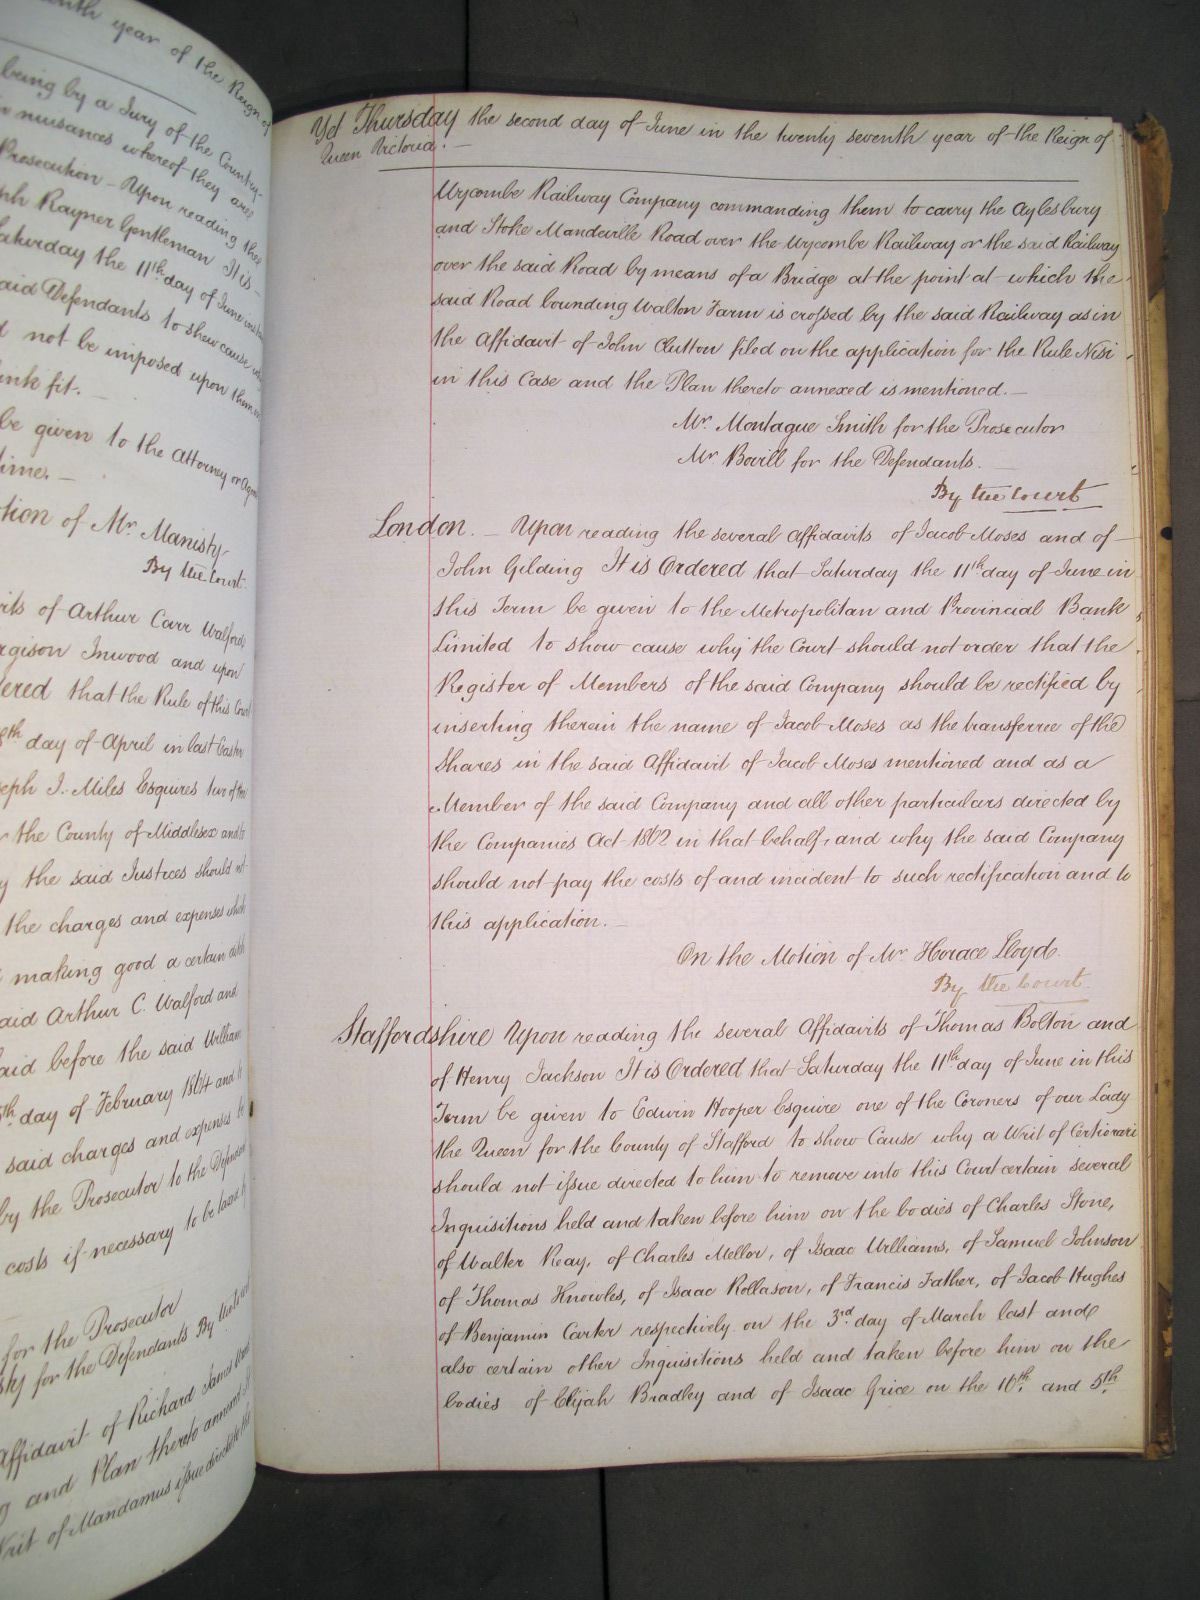 nth year of the Reign of
being by a Jury of the Country
nuisances whereof they are
Prosecution - Upon reading the
ph Rayner Gentleman It is -
Saturday the 11th day of June
said Defendants to shew cause
not be imposed upon them
ink fit. -
be given to the Attorney or
time. -
tion of Mr. Manisty
By the Court.
its of Arthur Carr Walford
rgison Inwood and upon
ered that the Rule of this Court
8th day of April in last Easter
eph J. Miles Esquires two of the
r the County of Middlesex and
y the said Justices should not
the charges and expenses which
making good a certain
said Arthur C. Walford and
said before the said William
5th day of February 1864 and
said charges and expenses
by the Prosecutor to the
costs if necessary to be taxed
for the Prosecutor
sty for the Defendants By the Court
Affidavit of Richard James
g and Plan thereto annexed
Writ of Mandamus issue directed to the
Yet Thursday the second day of June in the twenty seventh year of the Reign of
Queen Victoria. -
Wycombe Railway Company commanding them to carry the Aylesbury
and Stoke Mandeville Road over the Wycombe Railway or the said Railway
over the said Road by means of a Bridge at the point at which the
said Road bounding Walton Farm is crossed by the said Railway as in
the Affidavit of John Clutton filed on the application for the Rule Nisi
in this Case and the Plan thereto annexed is mentioned. -
Mr. Montague Smith for the Prosecutor
Mr Bovill for the Defendants. -
By the Court
London. - Upon reading the several Affidavits of Jacob Moses and of
John Gilding It is Ordered that Saturday the 11th day of June in
this Term be given to the Metropolitan and Provincial Bank
Limited to show cause why the Court should not order that the
Register of Members of the said Company should be rectified by
inserting therein the name of Jacob Moses as the transferree of the
Shares in the said Affidavit of Jacob Moses mentioned and as a
Member of the said Company and all other particulars directed by
the Companies Act 1862 in that behalf, and why the said Company
should not pay the costs of and incident to such rectification and to
this application. -
On the Motion of Mr Horace Lloyd.
By the Court.
Staffordshire Upon reading the several Affidavits of Thomas Bolton and
of Henry Jackson It is Ordered that Saturday the 11th day of June in this
Term be given to Edwin Hooper Esquire one of the Coroners of our Lady
the Queen for the County of Stafford to show Cause why a Writ of Certiorari
should not issue directed to him to remove into this Court certain several
Inquisitions held and taken before him on the bodies of Charles Stone,
of Walter Reay, of Charles Mellor, of Isaac Williams, of Samuel Johnson
of Thomas Knowles, of Isaac Rollason, of Francis Father, of Jacob Hughes
of Benjamin Carter respectively on the 3rd day of March last and
also certain other Inquisitions held and taken before him on the
bodies of Elijah Bradley and of Isaac Grice on the 10th and 5th